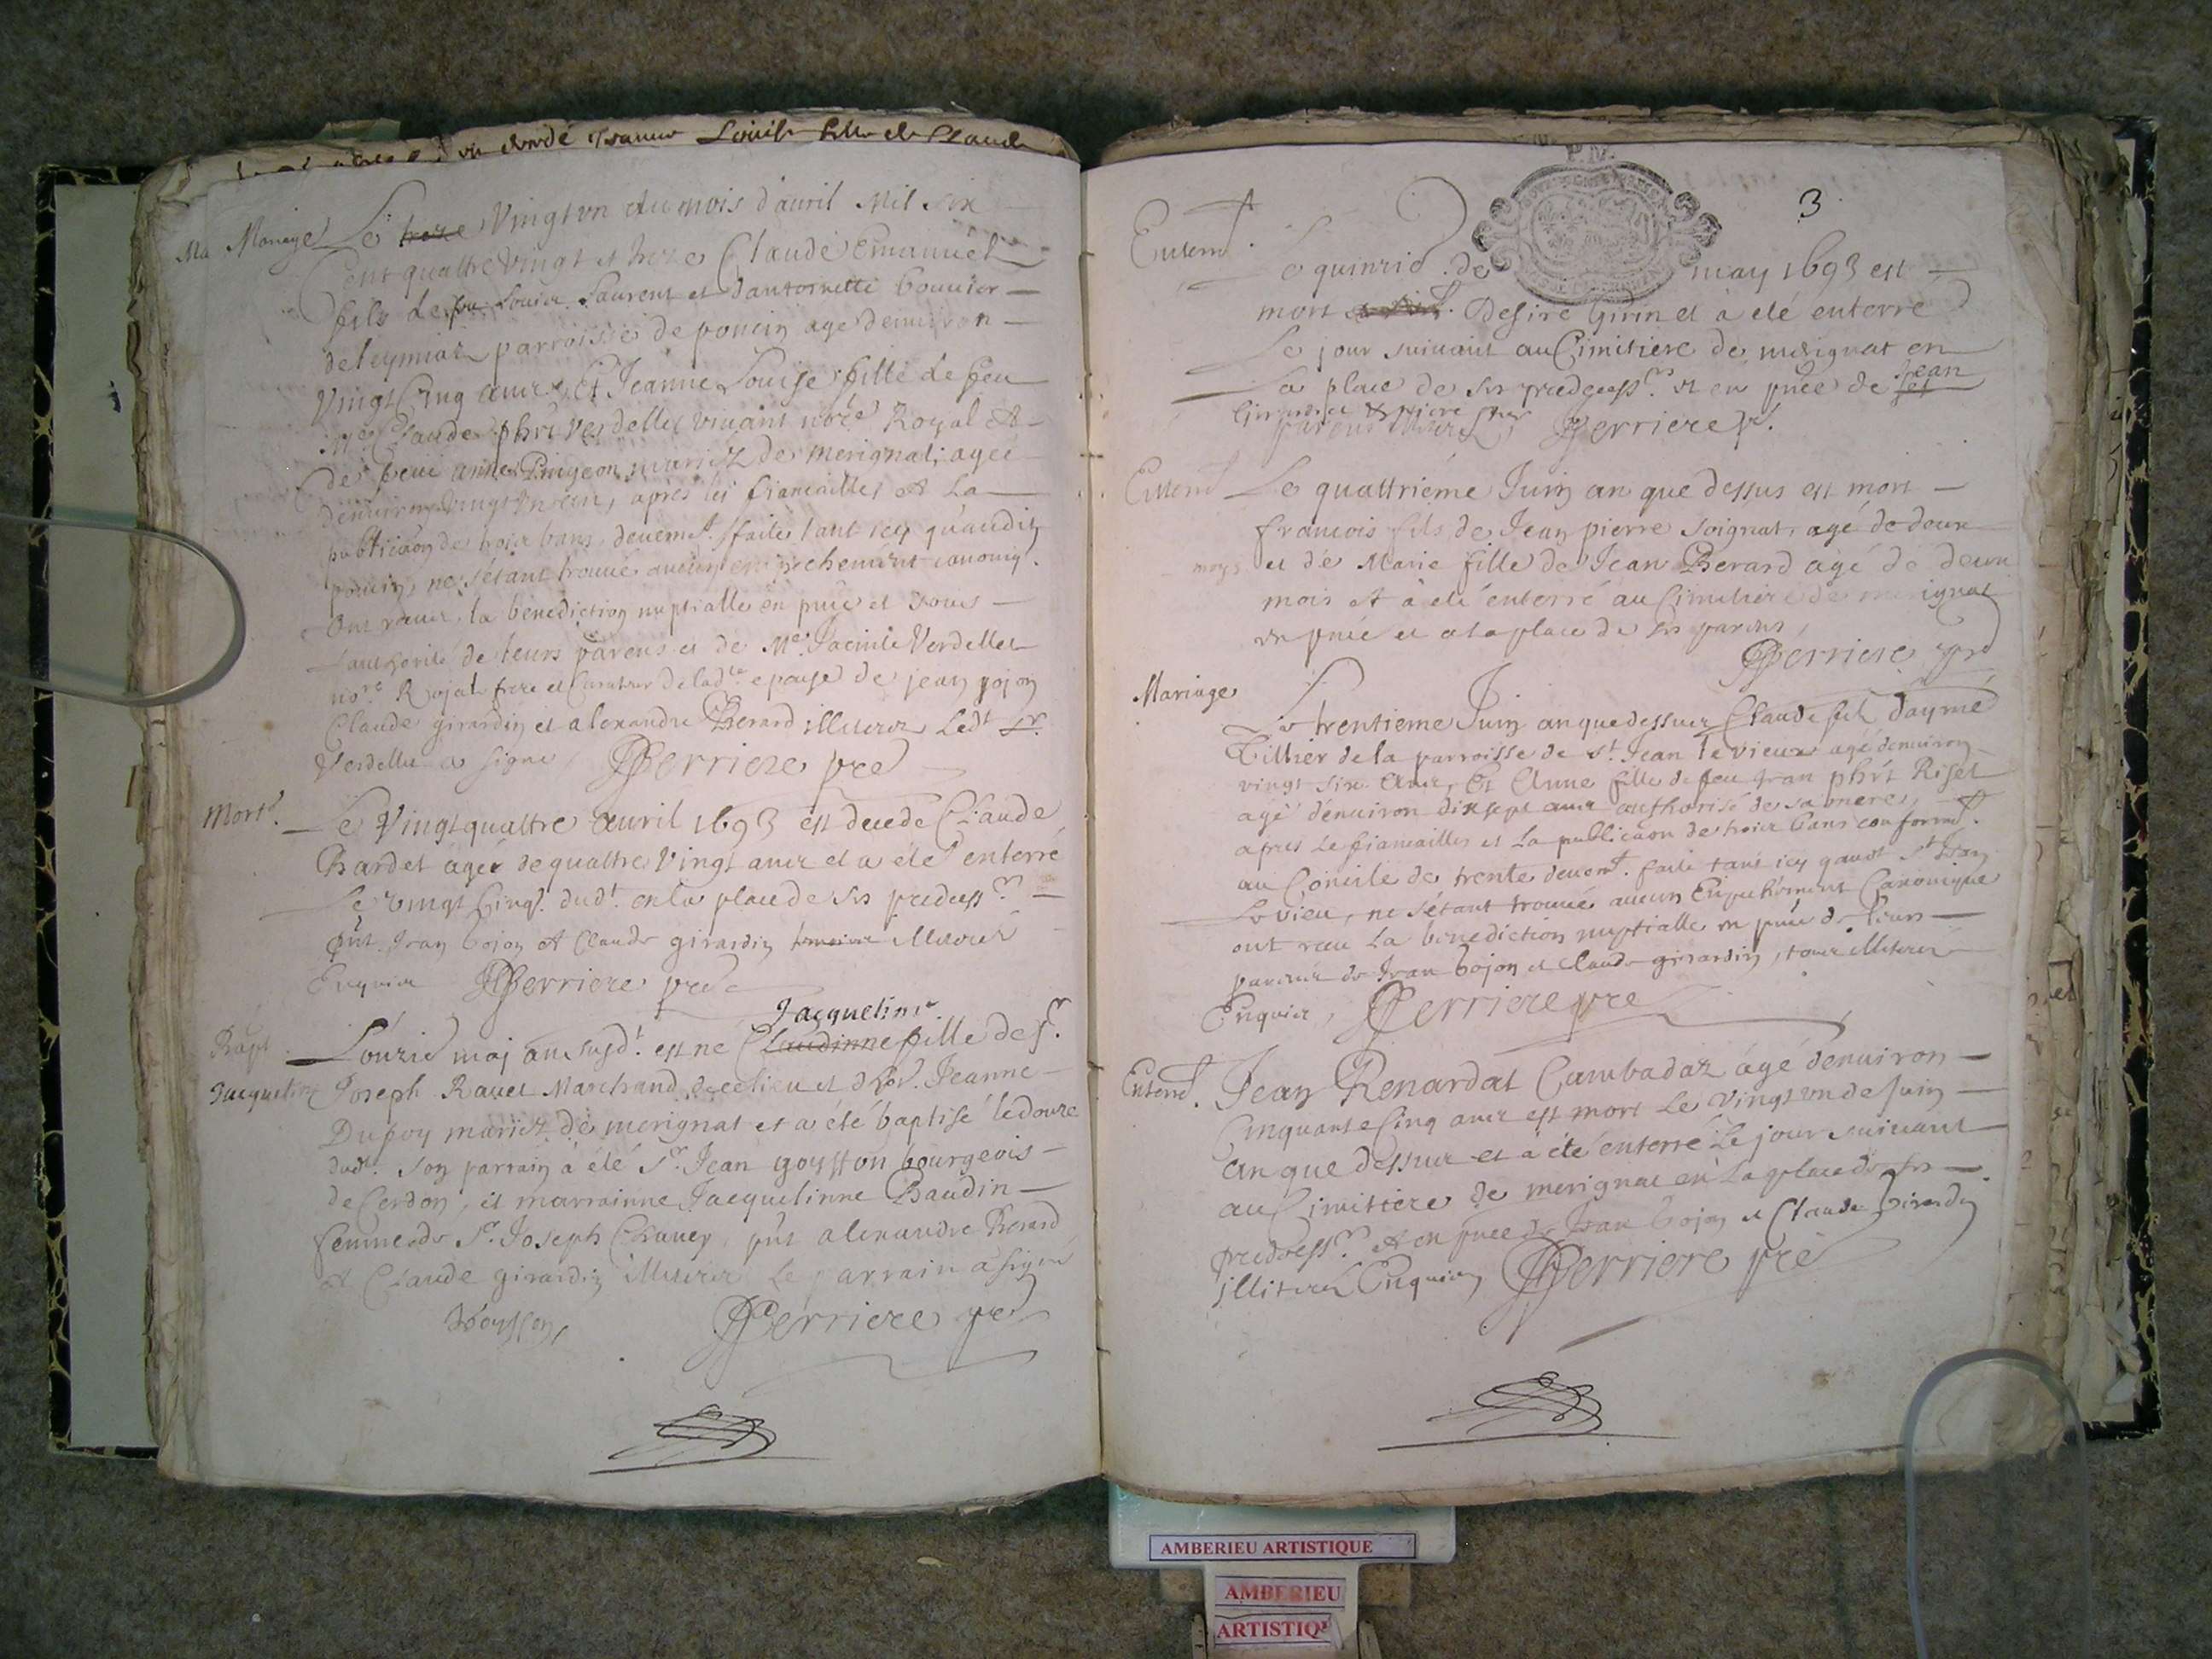 Louise fille de Claude
Ma Mariage Le treze Vingt un du mois d'auril Mil six
Cent quattre vingt et treze Claude Emanuel
fils de feu Louis Laurent et d'antoinette bouuier
de leymiaz parroisse de poncin age denuiron
Vingt Cinq ans, Et Jeanne Louise fille de feu
Me Claude phri Verdellet viuant nore Royal et
de feue anne Pingeon mariez de merignat, agee
denuiron vingt un ans, apres les fiancailles et La
publicaon de trois bans deuemt. faite tant icy qu'audit
poncin, ne s'etant trouué aucun empechement canoniq.
Ont receu la benediction nuptialle en pnce et sous
L'authorité de leurs parens et de Me. Jacinte Verdellet
nore Royal frere et Curateur de ladte epouse de jean gojon
Claude girardin et alexandre Berard illiterez Ledt Sr.
Verdellet a signé, Perriere pre
Mort. Le Vingt quattre auril 1693 est decedé Claude
Bardet agé de quattre Vingt ans et a été enterré
Le vingt Cinq. dudt. en la place de ses predess.rs
pnt. Jean Gojon et Claude girardin temoins illiterez
Enquis Perriere pre
Jacqueline
Bapt. L'onzie maj an susdt. est né Claudinne fille de sr.
Jacqueline Joseph Rauet Marchand de ce lieu et d'hon. Jeanne
Dupoy mariez de merignat et a été baptisé le douze
dudt. son parrain à été Sr. Jean goysson bourgeois
de Cerdon, et marrainne Jacquelinne Baudin
femme de Sr. Joseph Chauey, pnt alexandre Berard
et Claude girardin illiterez Le parrain a signé
Goysson Perriere pre
3
Enterrt. Le quinzie. de may 1693 est
mort Desiré Girin et à eté enterré
Le jour suiuant au Cimitiere de merignat en
La place de ses predecessrs et en pnce de Jean
Perriere p.
Enterrt Le quattriéme Juin an que dessus est mort
francois fils de Jean pierre Soignat, agé de deux
moys et dé Marie fille de Jean Berard agé de deux
mois et à eté enterré au Cimitiere de merignat
en pnce et a la place de ses parens,
Perriere pre
Mariage Le trentieme Juin an que dessus Claude fils d'aymé
Tillier de la parroisse de St. Jean le vieux agé denuiron
vingt six ans, Et Anne fille de feu Jean phrt Riset
agé denuiron dixsept ans authorisé de sa mere,
apres Le fiancailles et La publicaon de trois bans conformt.
au Concile de trente deuemt. faite tant icy qaudt St Jean
Le vieu, ne s'etant trouué aucun Empechement Canonique
ont receu La benediction nuptialle en pnce de leurs
parens de Jean Gojon et Claude girardin, tous illiterez
Enquis, Perriere pre
Enterrt. Jean Renardat Cambadaz âgé denuiron
Cinquante Cinq ans est mort Le vingt un de Juin
an que dessus et à été enterré Le jour suiuant
au Cimittere de merignat en La place de ses
predecessrs et en pnce de Jean Gojon et Claude Girardin
illiterez Enquis, Perriere pre
AMBERIEU ARTISTIQUE
AMBERIEU
ARTISTIQ